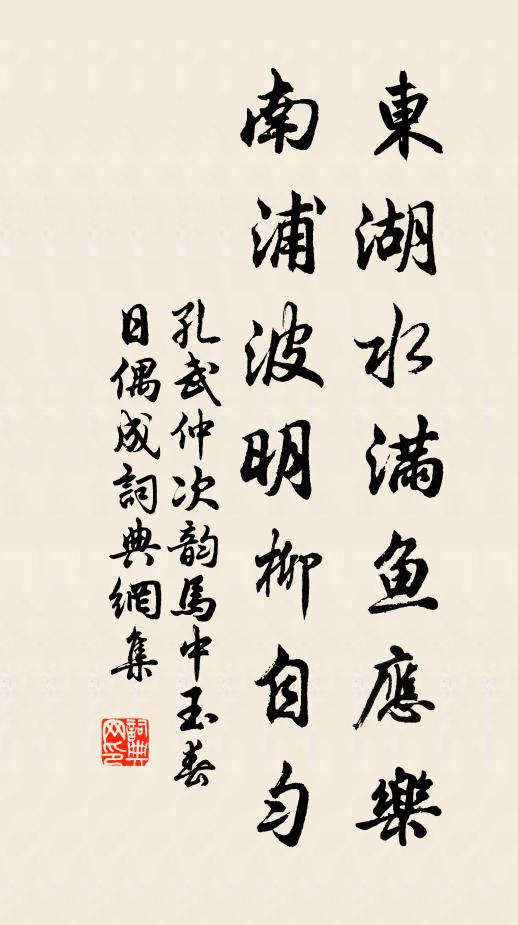 東湖水滿魚應樂
南浦波明柳自勻
孔武仲次韵馬中玉春
日偶成詞典網集
詞典网印